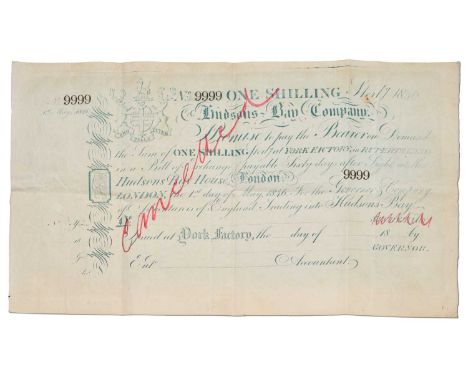 No 9999 ONE SHILLING Sterlg 1846
9999
1st May 1846
Hudsons Bay Company.
Promise to pay the Bearer on Demand
the Sum of ONE SHILLING Sterlg at YORK FACTORY in RUPERTSLAND
in a Bill of Exchange payable Sixty days after Sight at the
Hudsons Bay House London 9999
LONDON, the 1st day of May 1846. For the Governor & Company
of Adventurers of England Trading into Hudsons Bay
Cancelled
Issued at York Factory, the day of 18 by
GOVERNOR.
Entd Accountant